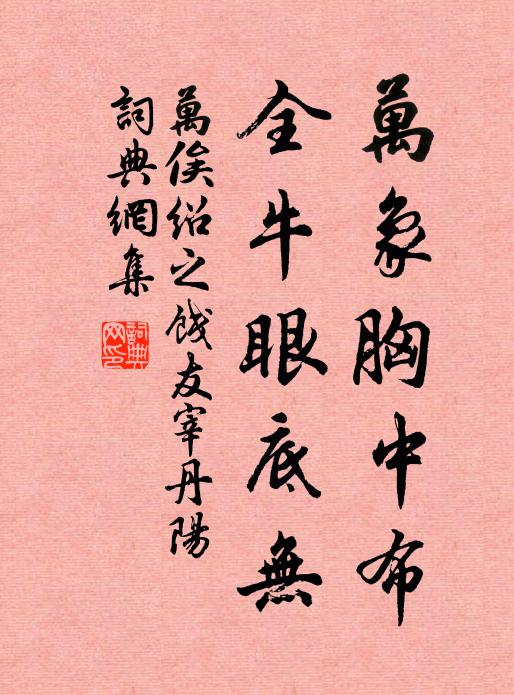 萬象胸中布
全牛眼底無
萬俟紹之餞友宰丹陽
詞典網集
詞典網印